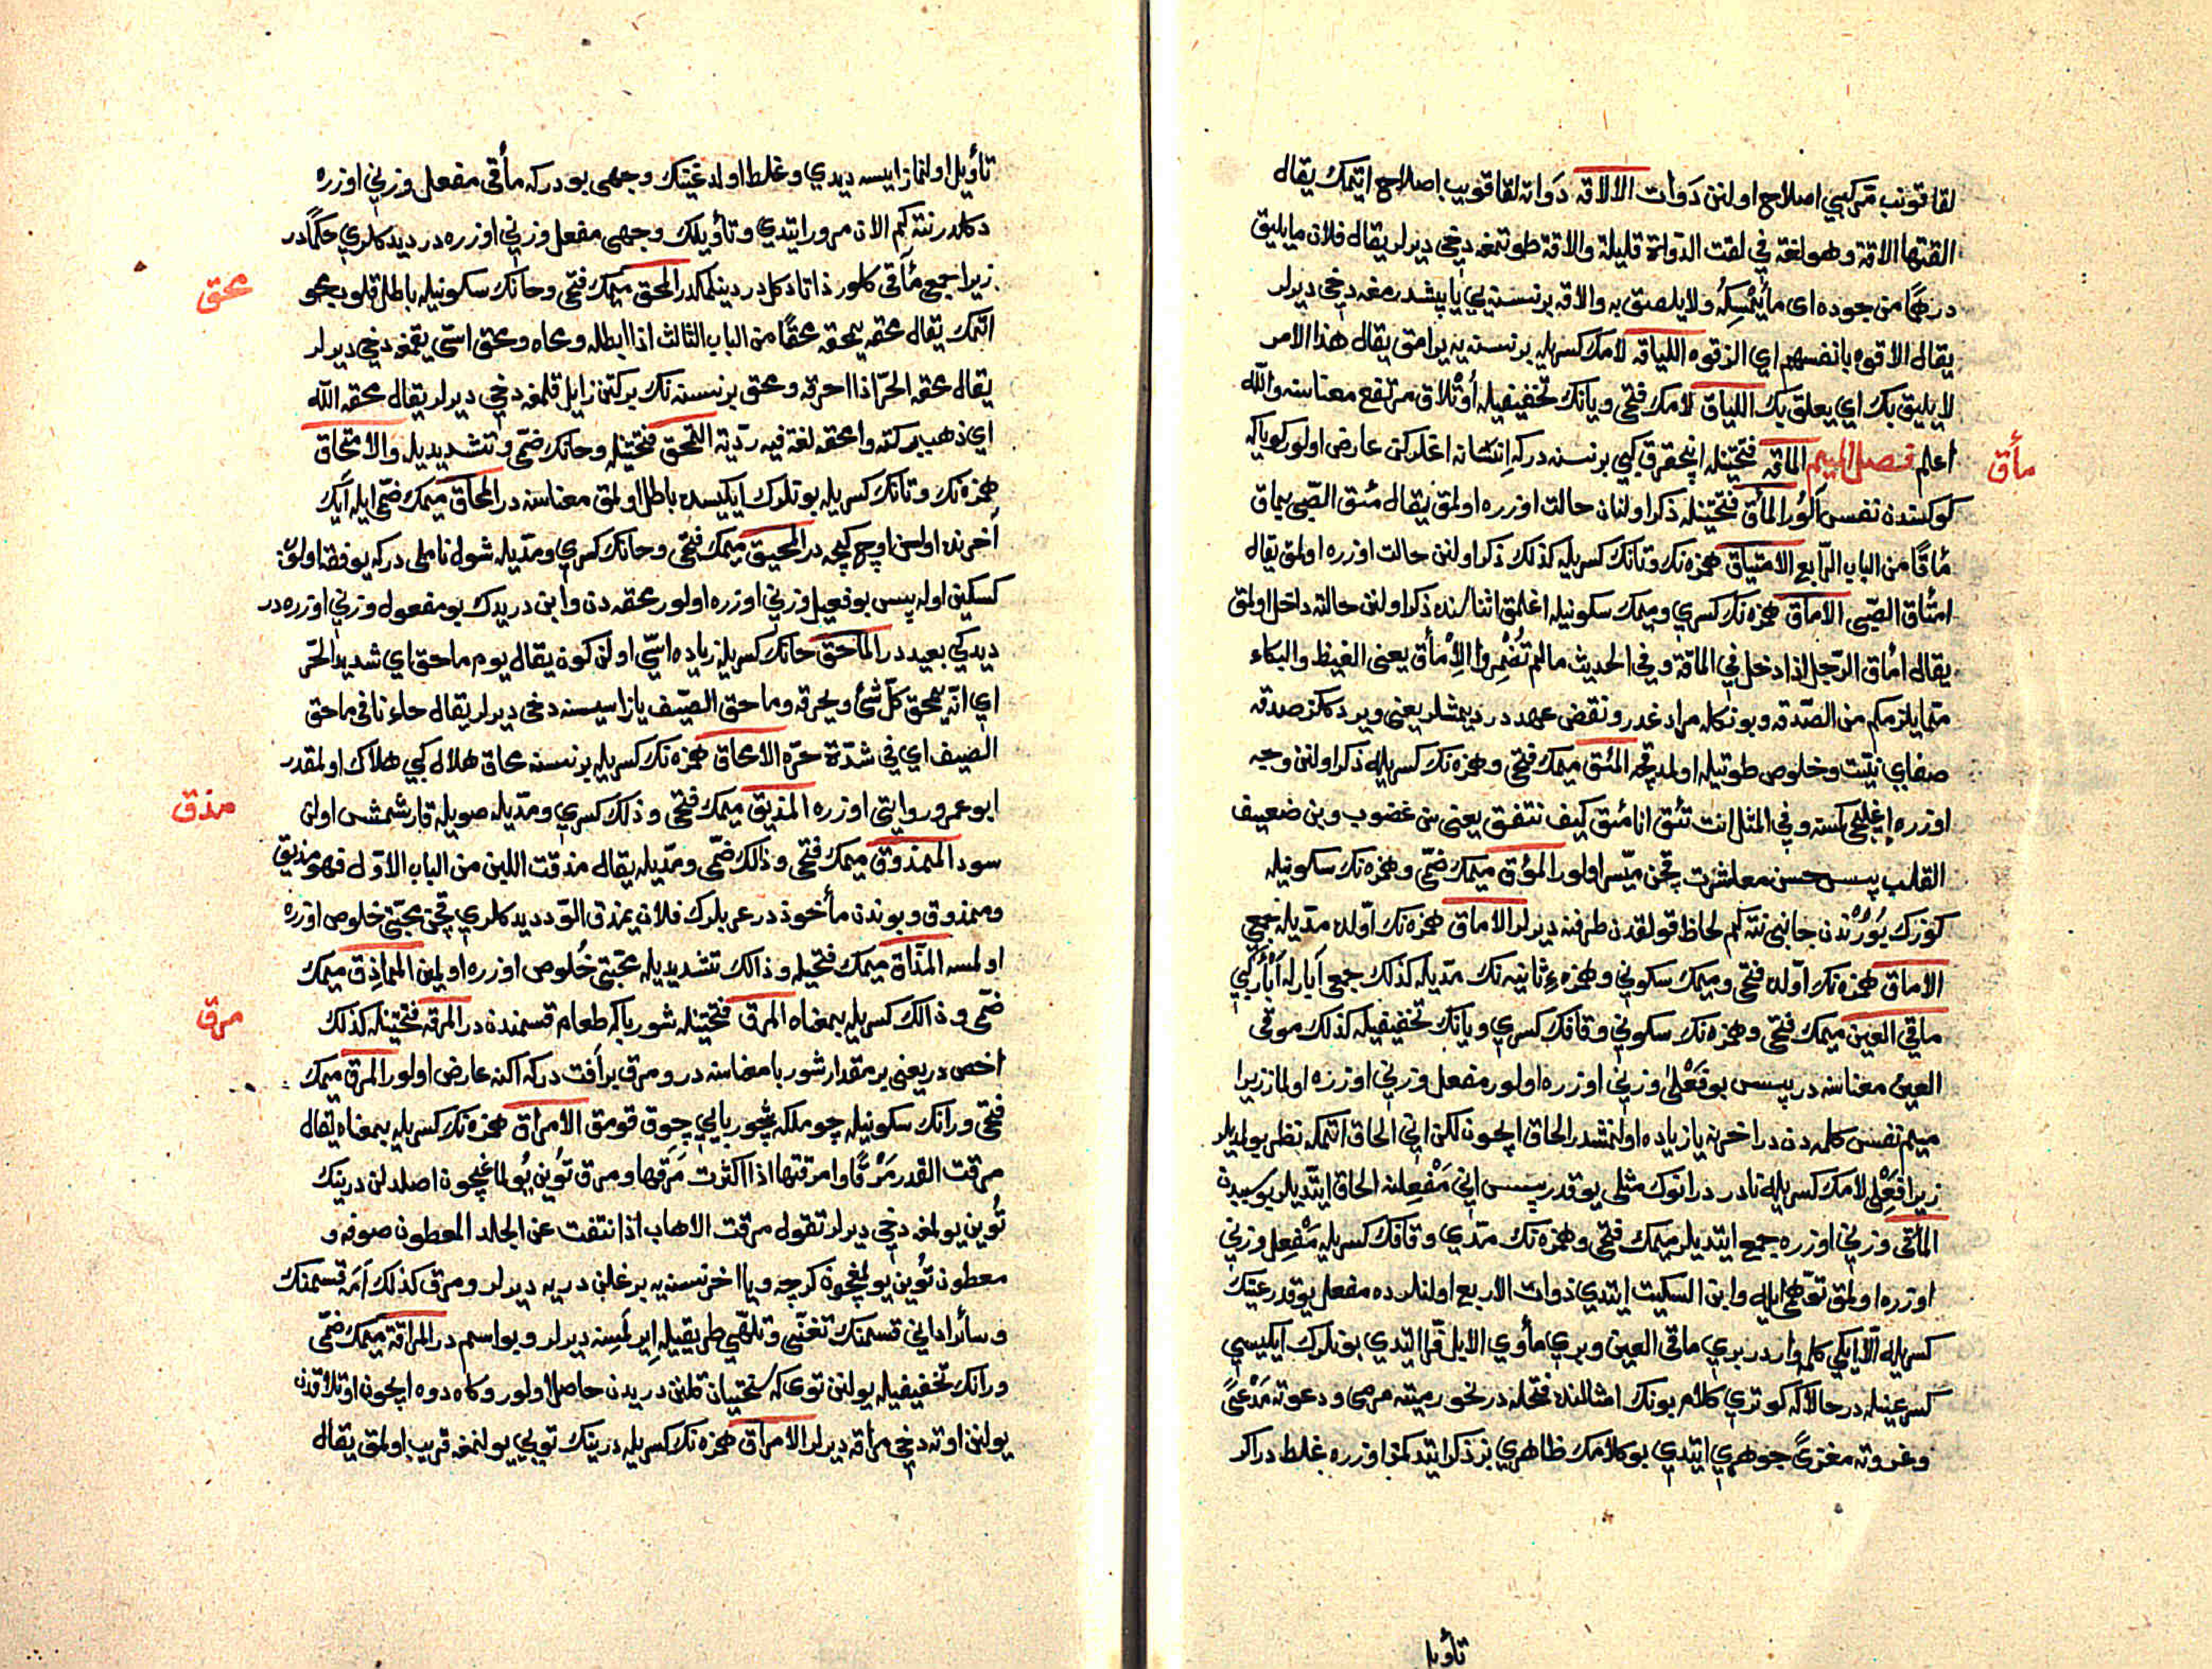 لقا قونب مركبي اصلاح اولنن دَوات الالاقه دَواته لقا قويب اصلاح ايتمك يقال
القتها الاقة وهو لغة في لقت الدواة قليلة والاقة طوتمغه دخي ديرلر يقال فلان ما يليق
درهمًا من جوده اى ما يُمْسِكُه ولا يلصق به والاقه بر نسنه يي يا پيشدرمغه دخي ديرلر
يقال الاقوه بانفسهم اي الزقوه اللياقه لامك كسريله بر نسنه يه يرامق يقال هذا الامر
لا يليق بك اي يعلق بك اللياق لامك فتحي ويانك تخفيفيله اُوتْلاق مرتفع معناسنه والله
اعلم فصل الميم الماقه فتحتينله انچقرق كبي بر نسنه دركه اِنسانه اغلركن عارض اولور كوياكه
مأق
كوكسندن نفس الُور المأق فتحتينله ذكر اولنان حالت اوزره اولمق يقال مئق الصّبي يماق
مأقًا من الباب الرّابع الامتياق همزه نك وتانك كسريله كذلك ذكر اولنن حالت اوزره اولمق يقال
امتأق الصّبي الامآق همزه نك كسري وميمك سكونيله اغلمق اثناسنده ذكر اولنن حالته داخل اولمق
يقال امأق الرّجل اذا دخل في الماقة وفي الحديث ما لم تُضْمِرُوا الاِمْأق يعنى الغيظ والبكاء
ممّا يلزمكم من الصّدقه وبونكله مراد غدر ونقض عهد در ديمشلر يعنى ويردكلز صدقه
صفاي نيّت وخلوص طويتيله اولدقچه المئق ميمك فتحي وهمزه نك كسريله ذكر اولنن وجه
اوزره اغليجي كسنه وفي المثل انت تئق انا مئق كيف نتفق يعنى سن غضوب وبن ضعيف
القلب پس حسن معاشرت قچن ميسّر اولور المؤق ميمك ضمّي وهمزه نك سكونيله
كوزك بُورُنْدن جانبى نته كم لحاظ قولقدن طرفنه ديرلر الاماق همزه نك اوّلده مدّيله جمعي
الامآق همزه نك اوّلده فتحي وميمك سكوني وهمزهٔ ثانيه نك مدّيله كذلك جمعي آبارله اَبْأر كبي
مأقي العين ميمك فتحي وهمزه نك سكوني وقافك كسري ويانك تخفيفيله كذلك موقى
العين معناسنه در پس بو فَعْلى وزني اوزره اولور مفعل وزني اوزره اولماز زيرا
ميم نفس كلمه دندر اخرنه يا زياده اولنمشدر الحاق ايچون لكن انى الحاق اتمكه نظير بولمديلر
زيرا فَعْلِى لامك كسريله نادر در انوك مثلى يوقدر پس انى مَفْعِلنه الحاق ايتديلر بو سببدن
المأقى وزني اوزره جمع ايتديلر ميمك فتحي وهمزه نك مدّي وقافك كسريله مَفْعِل وزني
اوزره اولمق توهمي ايله وابن السكيت ايتدي ذوات الاربع اولنلرده مفعل يوقدر عينك
كسريله الّا ايكي كلمه وارد ر بري ماقى العين وبري مأوي الابل فرّا ايتدي بونلرك ايكيسى
كسر عينله در حالا كه كوتري كلام بونك امثالنده فتحله در نحو رميته مرمى ودعوته مَدْعىً
وغزوته مغزىً جوهري ايتدي بو كلامك ظاهري بز ذكر ايتدكمز اوزره غلط در اكر
تأويل
تأويل اولنماز ايسه ديدي وغلط اولدغينك وجهى بودركه مأقى مفعل وزني اوزره
دكلدر نته كم الان مرور ايتدي وتأويلك وجهى مفعل وزني اوزره در ديدكلري حكمًا در
زيرا جمعي مآقى كلور ذاتا دكلدر دينلمكدر المحق ميمك فتحي وحانك سكونيله باطل قلوب محو
محق
اتمك يقال محقه يمحقه محقًا من الباب الثالث اذا ابطله ومحاه ومحق اسّي يقمغه دخي ديرلر
يقال محقه الحرّ اذا احرقه ومحق بر نسنه نك بركتن زايل قلمغه دخي ديرلر يقال محقه الله
اي ذهب ببركته وامحقه لغة فيه رديّة التّمحّق فتحتينله وحانك ضمّي وتشديديله والامتحاق
همزه نك وتانك كسريله بونلرك ايكيسده باطل اولمق معناسنه در المحاق ميمك ضمّي ايله آيك
اخرنده اولن اوچ كيجه در المحيق ميمك فتحي وحانك كسري ومدّيله شول نامى دركه يوفقه اولوب
كسكين اوله پس بو فعيل وزني اوزره اولور محقه دن وابن دريدك بو مفعول وزني اوزره در
ديدكي بعيد در الماحق حانك كسريله زياده اسّي اولن كون يقال يوم ماحق اي شديد الحرّ
اي انّه يمحق كلّ شئ ويحرقه وماحق الصّيف ياز اسيسنه دخي ديرلر يقال جاءنا في ماحق
الصيف اي في شدّة حرّه الامحاق همزه نك كسريله بر نسنه محاق هلال كبي هلاك اولمقدر
ابو عمرو روايتي اوزره المذيق ميمك فتحي وذالك كسري ومدّيله صويله قارشمش اولن
مذق
سود الممذوق ميمك فتحي وذالك ضمّي ومدّيله يقال مذقت اللبن من الباب الاوّل فهو مذيق
وممذوق وبوندن مأخوذ در عربلرك فلان يمذق الودّ ديدكلري قچن محبّتى خلوص اوزره
اولمسه المذّاق ميمك فتحيله وذالك تشديديله محبّتي خُلوص اوزره اولمين المماذِق ميمك
ضمّي وذالك كسريله بمعناه المرق فتحتينله شورباكه طعام قسمندندر المرقه فتحتينله كذلك
مرق
اخصّ در يعنى بر مقدار شوربا معناسنه در ومرق بر آفت دركه اكنه عارض اولور المرق ميمك
فتحي ورانك سكونيله چوملكه شوربايي چوق قومق الامراق همزه نك كسريله بمعناه يقال
مرقت القدر مَرْقًا وامرقتها اذا اكثرت مَرَقها ومرق تُوين يُولماغيچون اصلدلن درينك
تُوين يولمغه دخي ديرلر تقول مرقت الاهاب اذا نتفت عن الجلد المعطون صوفه و
معطون تُوين يولمغيچون كرچه ويا اخر نسنه يه برغلن دريه ديرلر ومرق كذلك اَمَه قسمنك
وسائر اداني قسمنك تغنّي وتلهّي طريقيله اِيرلَمسنه ديرلر وبو اسم در المراقة ميمك ضمّي
ورانك تخفيفيله يولنن توي كه سختيان قلنن دريدن حاصل اولور وكاه دوه ايچون اوتلاقدن
يولنن اوته دخي مراقه ديرلر الامراق همزه نك كسريله درينك تويي يولنمغه قريب اولمق يقال